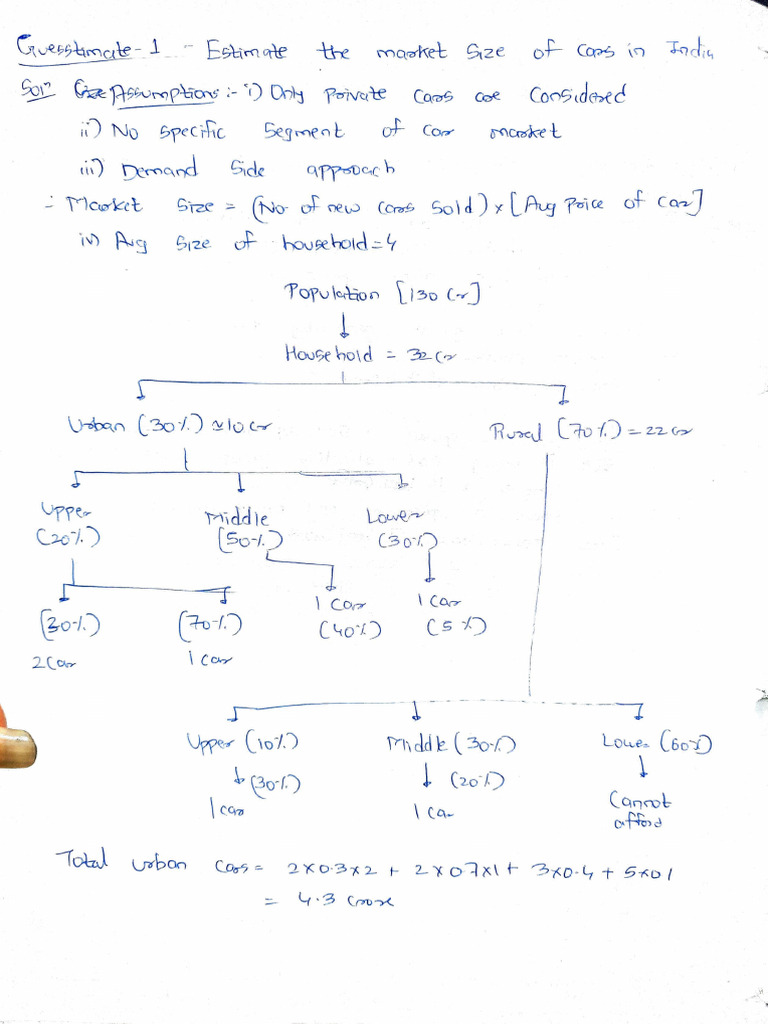 Guesstimate-1 - Estimate the market size of cars in India
Soln Assumptions:- i) Only private cars are considered
ii) No specific segment of car market
iii) Demand side approach
∴ Market size = (No of new cars sold) x [Avg Price of car]
iv) Avg size of household=4
Population [130 Cr]
Household = 32 Cr
Urban (30%) ≃ 10 cr
Rural (70%) = 22 cr
Upper Middle Lower
(20%) (50%) (30%)
1 Car 1 Car
(30%) (70%) (40%) (5%)
2 Car 1 car
Upper (10%) Middle (30%) Lower (60%)
(30%) (20%)
1 car 1 car Cannot
afford
Total urban cars = 2x0.3x2 + 2x0.7x1+ 3x0.4 + 5x01
= 4.3 crore